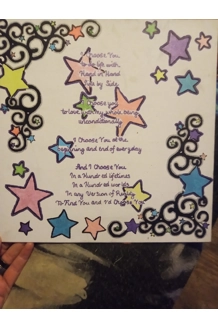 I Choose You
To do life with,
Hand in Hand
Side by Side
I Choose you
To love with my whole being
unconditionally
I Choose You at the
beginning and End of everyday
And I Choose You
In a Hundred lifetimes
In a Hundred worlds
In any Version of Reality
To Find You and I'd Choose You